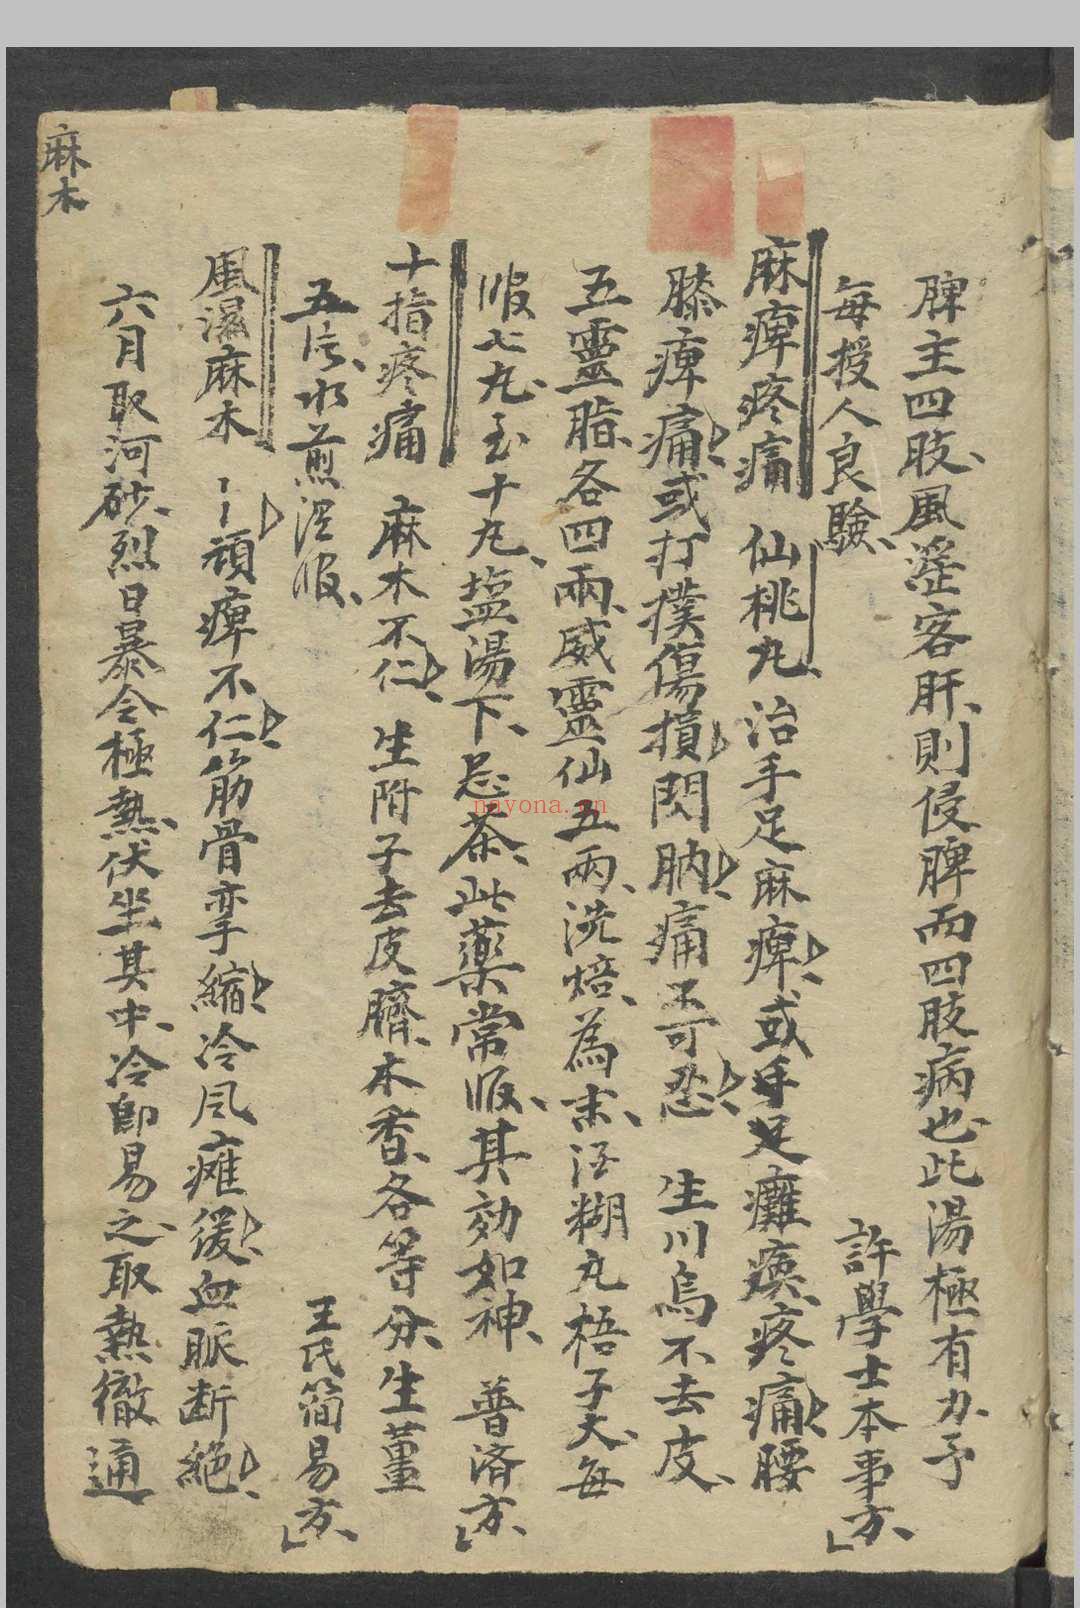 脾主四肢風淫客肝則侵脾而四肢病也此湯極有力予
每授人良驗 許學士本事方
麻痺疼痛 仙桃丸治手足麻痺或手足癱瘓疼痛腰
膝痺痛或打撲傷損閃肭痛不可忍 生川烏不去皮
五靈脂各四兩威靈仙五兩洗焙為末酒糊丸梧子大每
服七丸至十丸塩湯下忌茶此藥常服其効如神 普済方
十指疼痛 麻木不仁 生附子去皮臍木香各等分生薑
五片水煎温服 王氏簡易方
風濕麻木 頑痺不仁筋骨挛縮冷风瘫缓血脈断絕
六月取河砂烈日暴令極熱伏坐其中冷即易之取熱徹通
麻木
nayona.cn